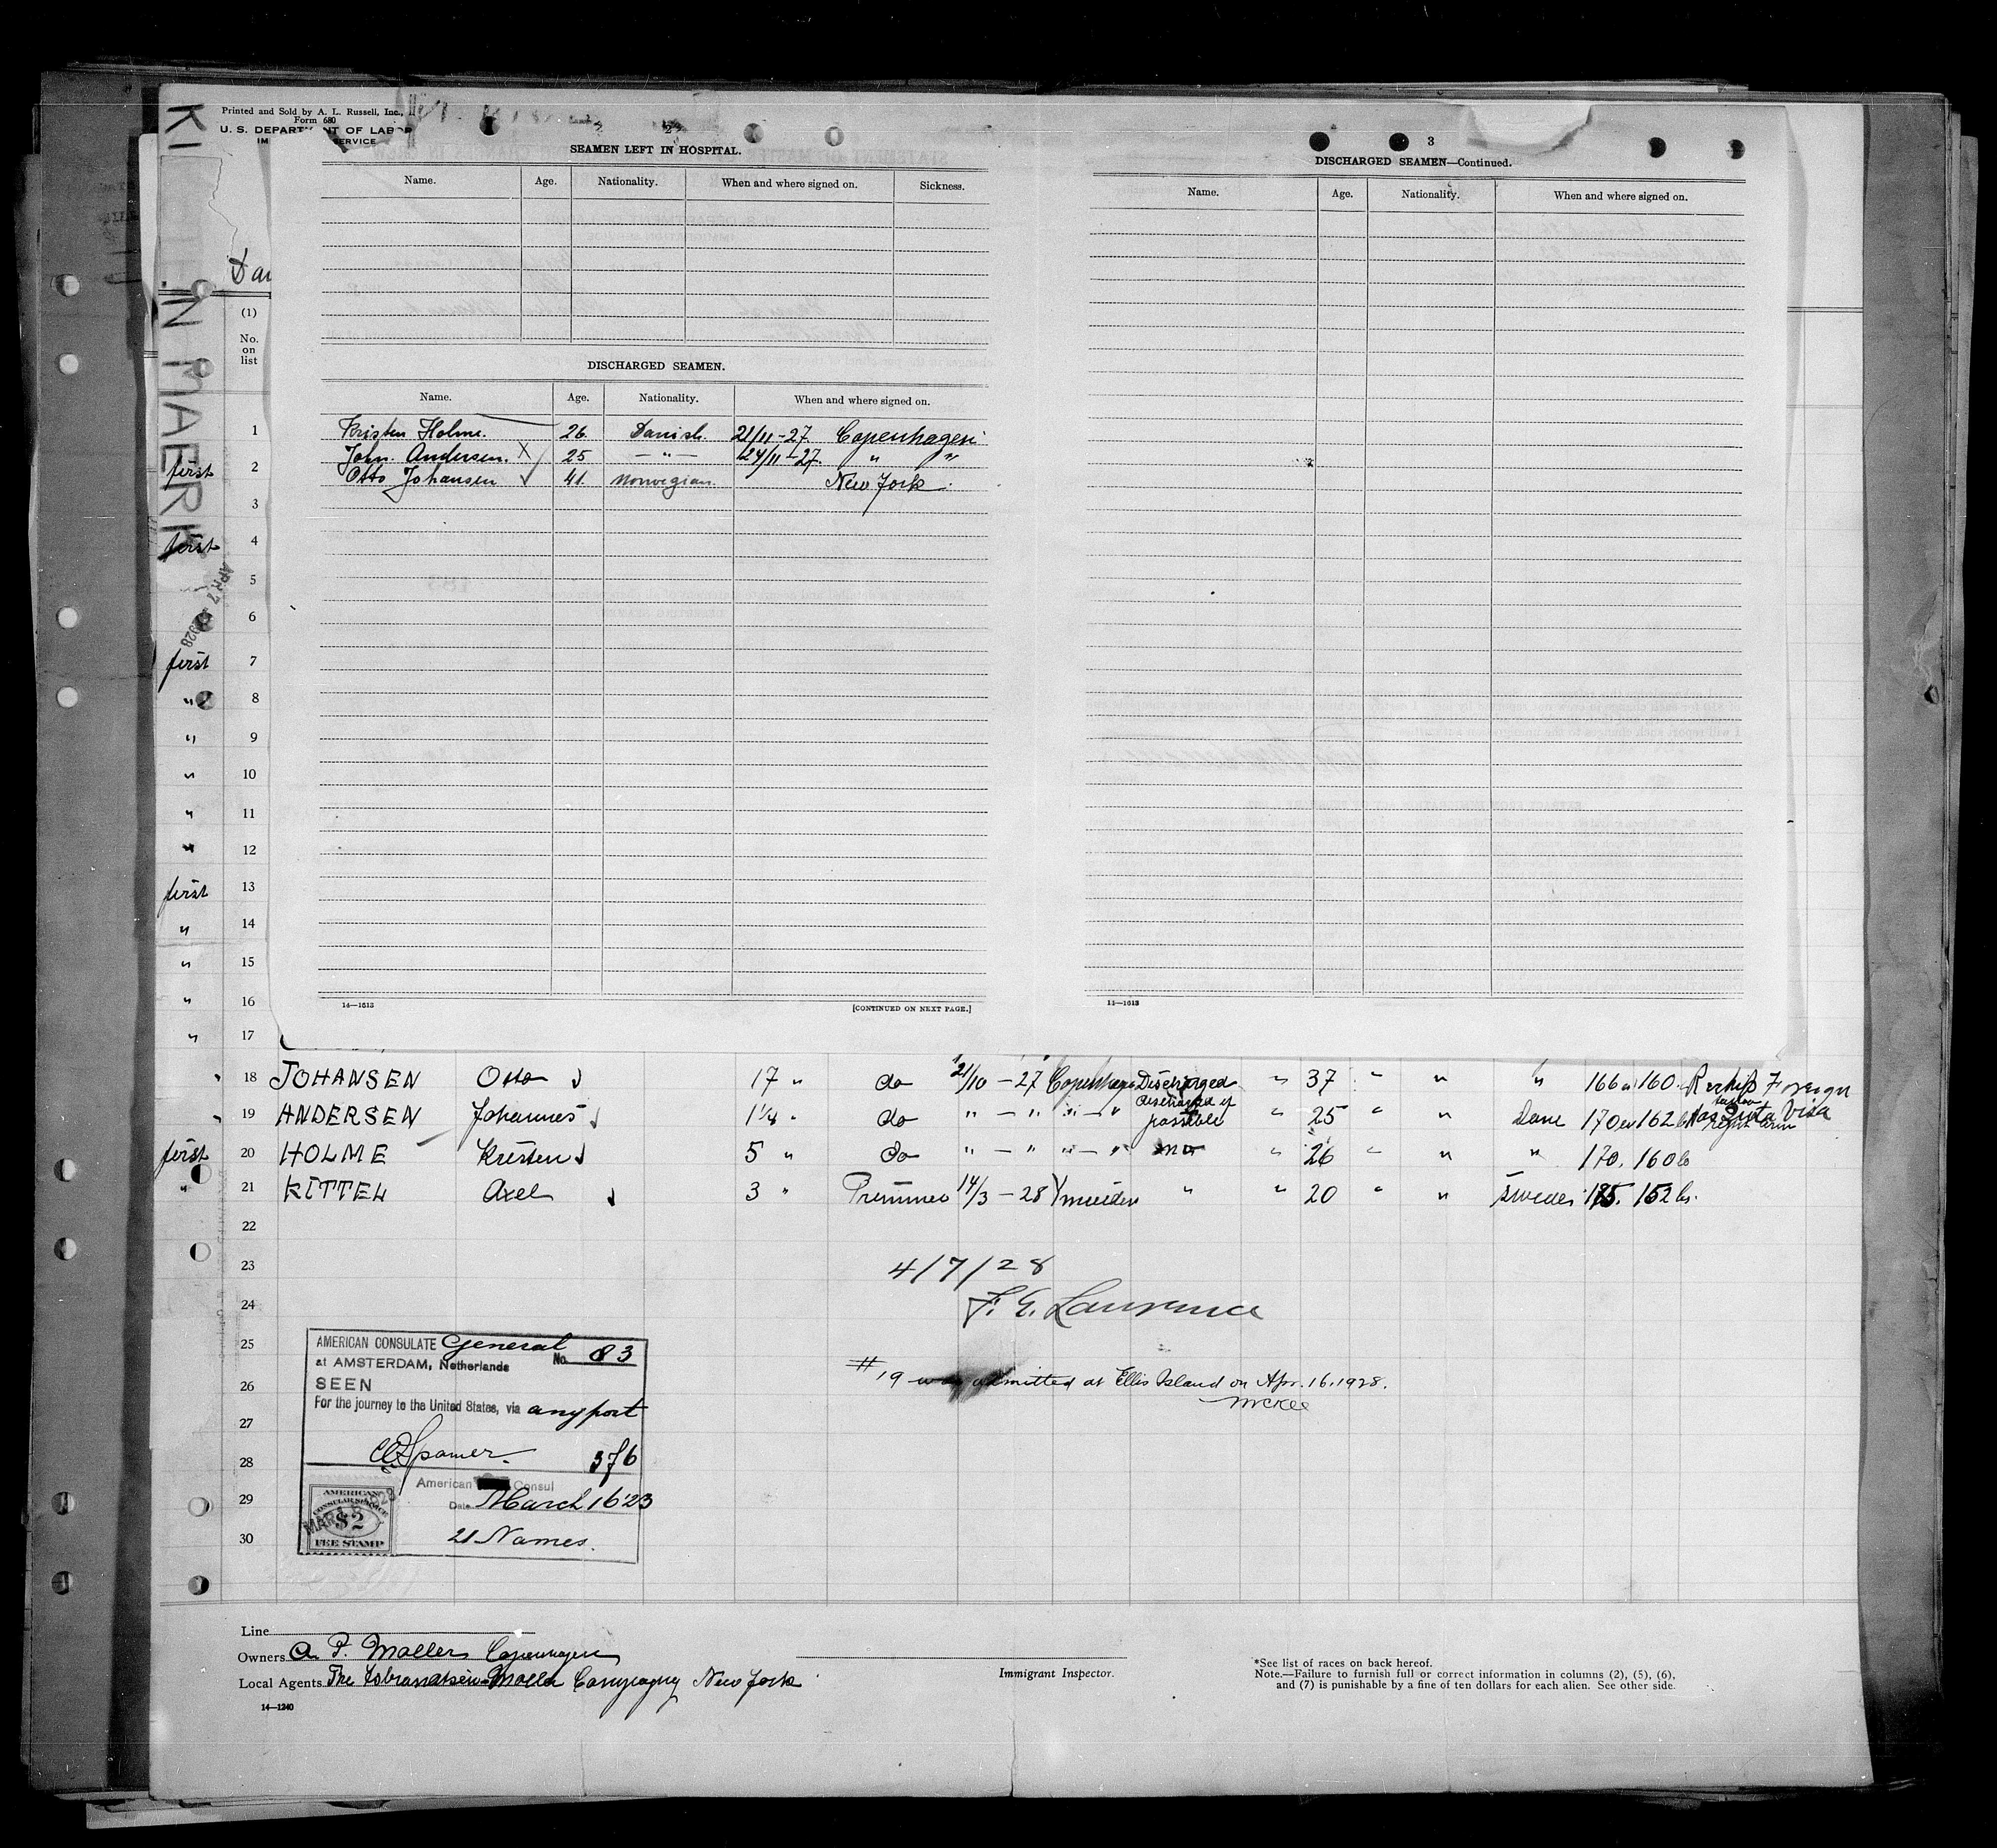 Printed and Sold by A. L. Russell, Inc.,
Form 680
U. S. DEPARTMENT OF LABOR
SERVICE
2
SEAMEN LEFT IN HOSPITAL.
Name. Age. Nationality. When and where signed on. Sickness.
DISCHARGED SEAMEN.
Name. Age. Nationality. When and where signed on.
Kristen Holme. 26. Danish. 21/11-27 Copenhagen
John. Andersen. X 25 — " — 24/11-27. " "
Otto Johansen ✓ 41. Norwegian. New York.
14—1613
[CONTINUED ON NEXT PAGE.]
3
DISCHARGED SEAMEN—Continued.
Name. Age. Nationality. When and where signed on.
14—1613
MAERK
APR 7 1928
(1)
No.
on
list
1
first 2
3
first 4
5
6
first 7
" 8
" 9
" 10
" 11
" 12
first 13
" 14
" 15
" 16
" 17
18 JOHANSEN Otto 17 " do 21/10 - 27 Copenhagen Discharged " 37 " " " 166 160 Foreign
19 ANDERSEN Johannes 1¼ " do " — " " — " discharged if possible " 25 " " Dane 170 162 Visa
first 20 HOLME Kristen 5 " do " — " " — " no " 26 " " " 170. 160
" 21 KITTEL Axel 3 " 14/3 - 28 Ymuiden " " 20 " " 152 lbs.
22
23
24
25
26
27
28
29
30
4/7/28
F. E. Lawrence
#19 was admitted at Ellis Island on Apr. 16, 1928.
McKee
AMERICAN CONSULATE General
at AMSTERDAM, Netherlands No. 83
SEEN
For the journey to the United States, via any port
376
American Consul
Date March 16
21 Names.
AMERICAN
CONSULAR SERVICE
$2
FEE STAMP
Line
Owners A. P. Moller Copenhagen
Local Agents The Isbrandtsen-Moller Company New York
14—1240
Immigrant Inspector.
*See list of races on back hereof.
Note.—Failure to furnish full or correct information in columns (2), (5), (6),
and (7) is punishable by a fine of ten dollars for each alien. See other side.